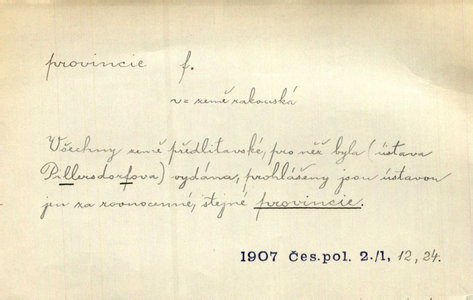 provincie f.
v= země rakouská
Všechny země předlitavské, pro něž byla (ústava
Pillersdorfova) vydána, prohlášeny jsou ústavou
jen za rovnocenné, stejné provincie.
1907 Čes. pol. 2./1, 12, 24.